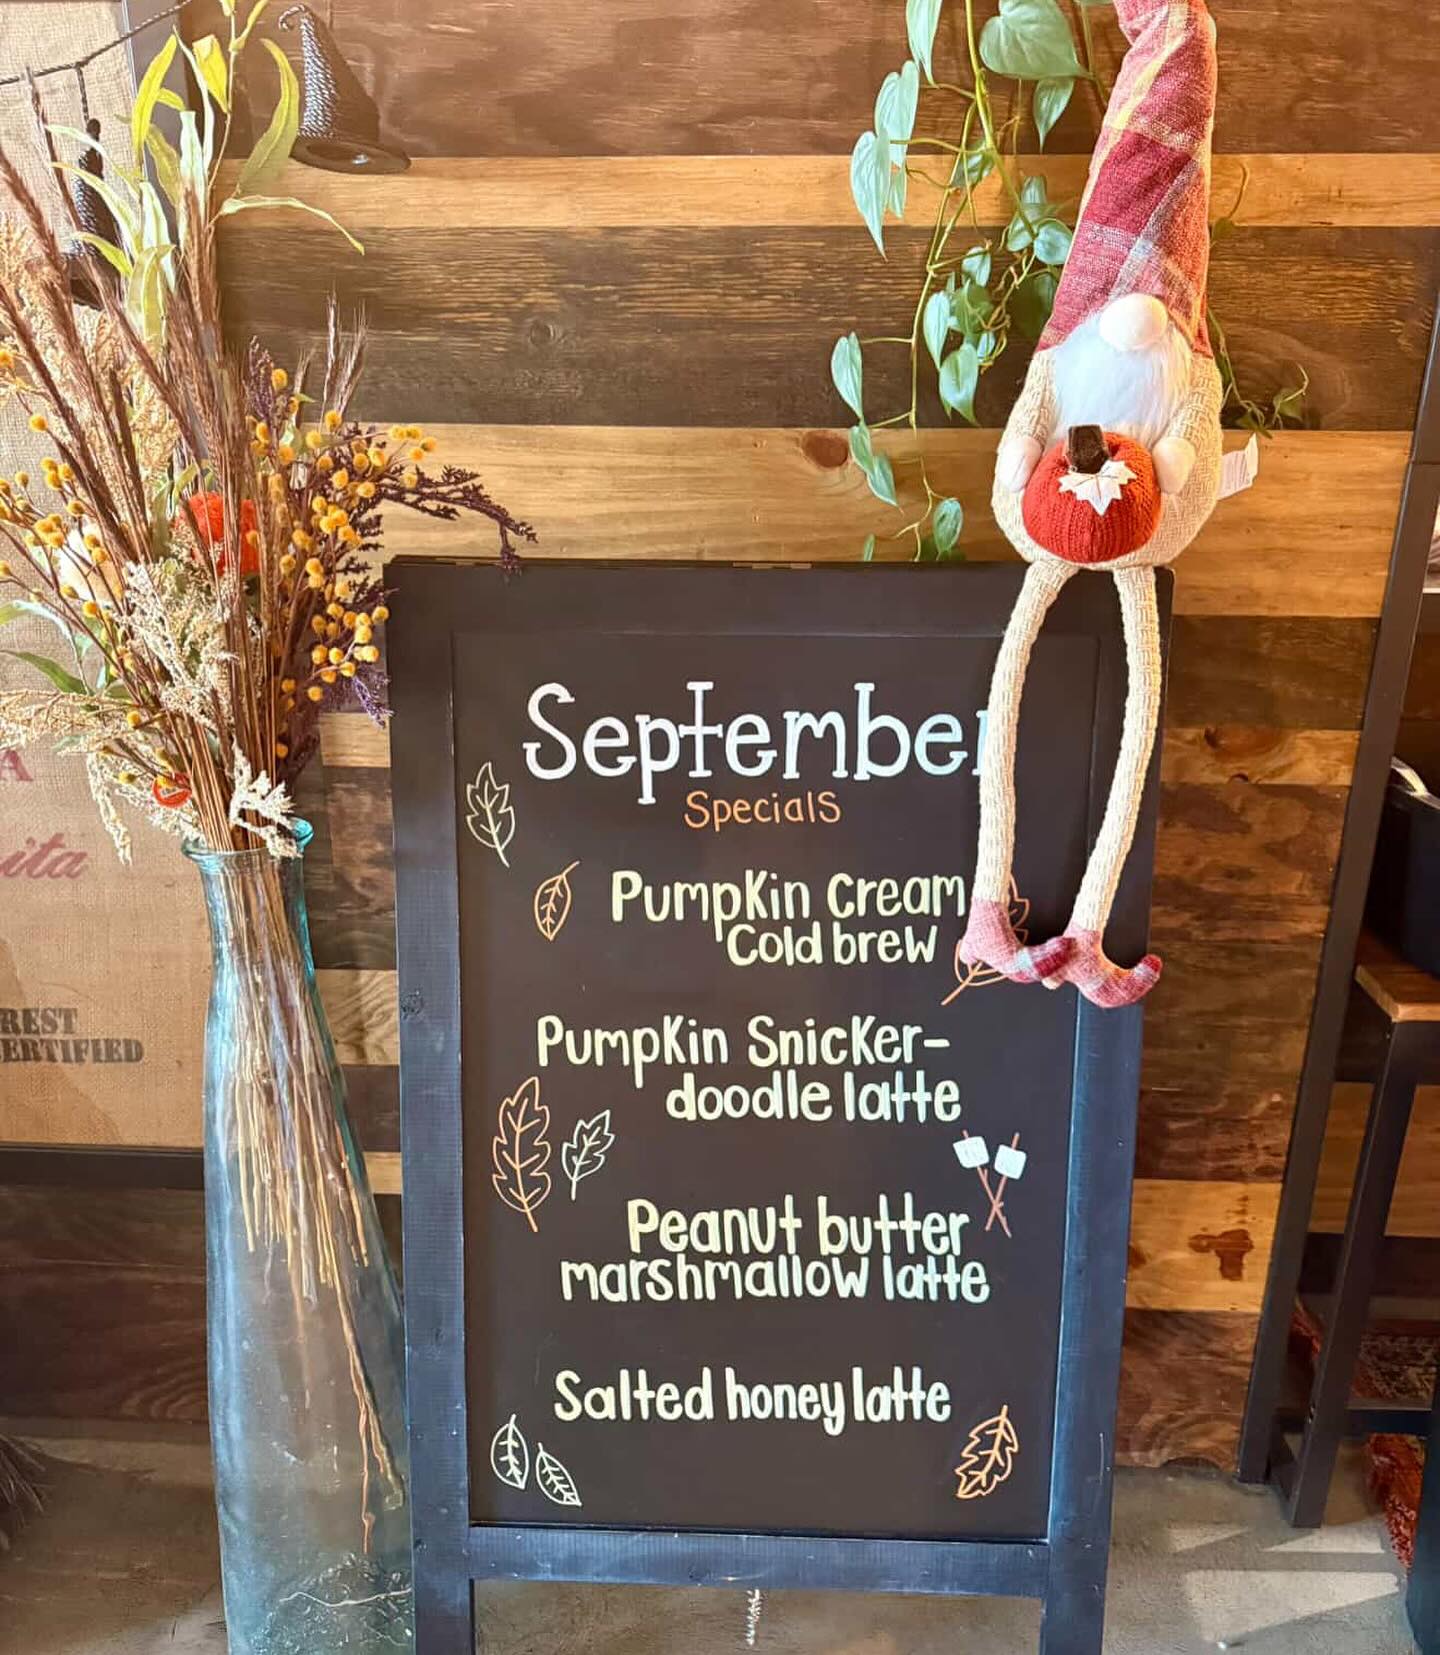 September
Specials
Pumpkin Cream
Cold brew
Pumpkin Snicker-
doodle latte
Peanut butter
marshmallow latte
Salted honey latte